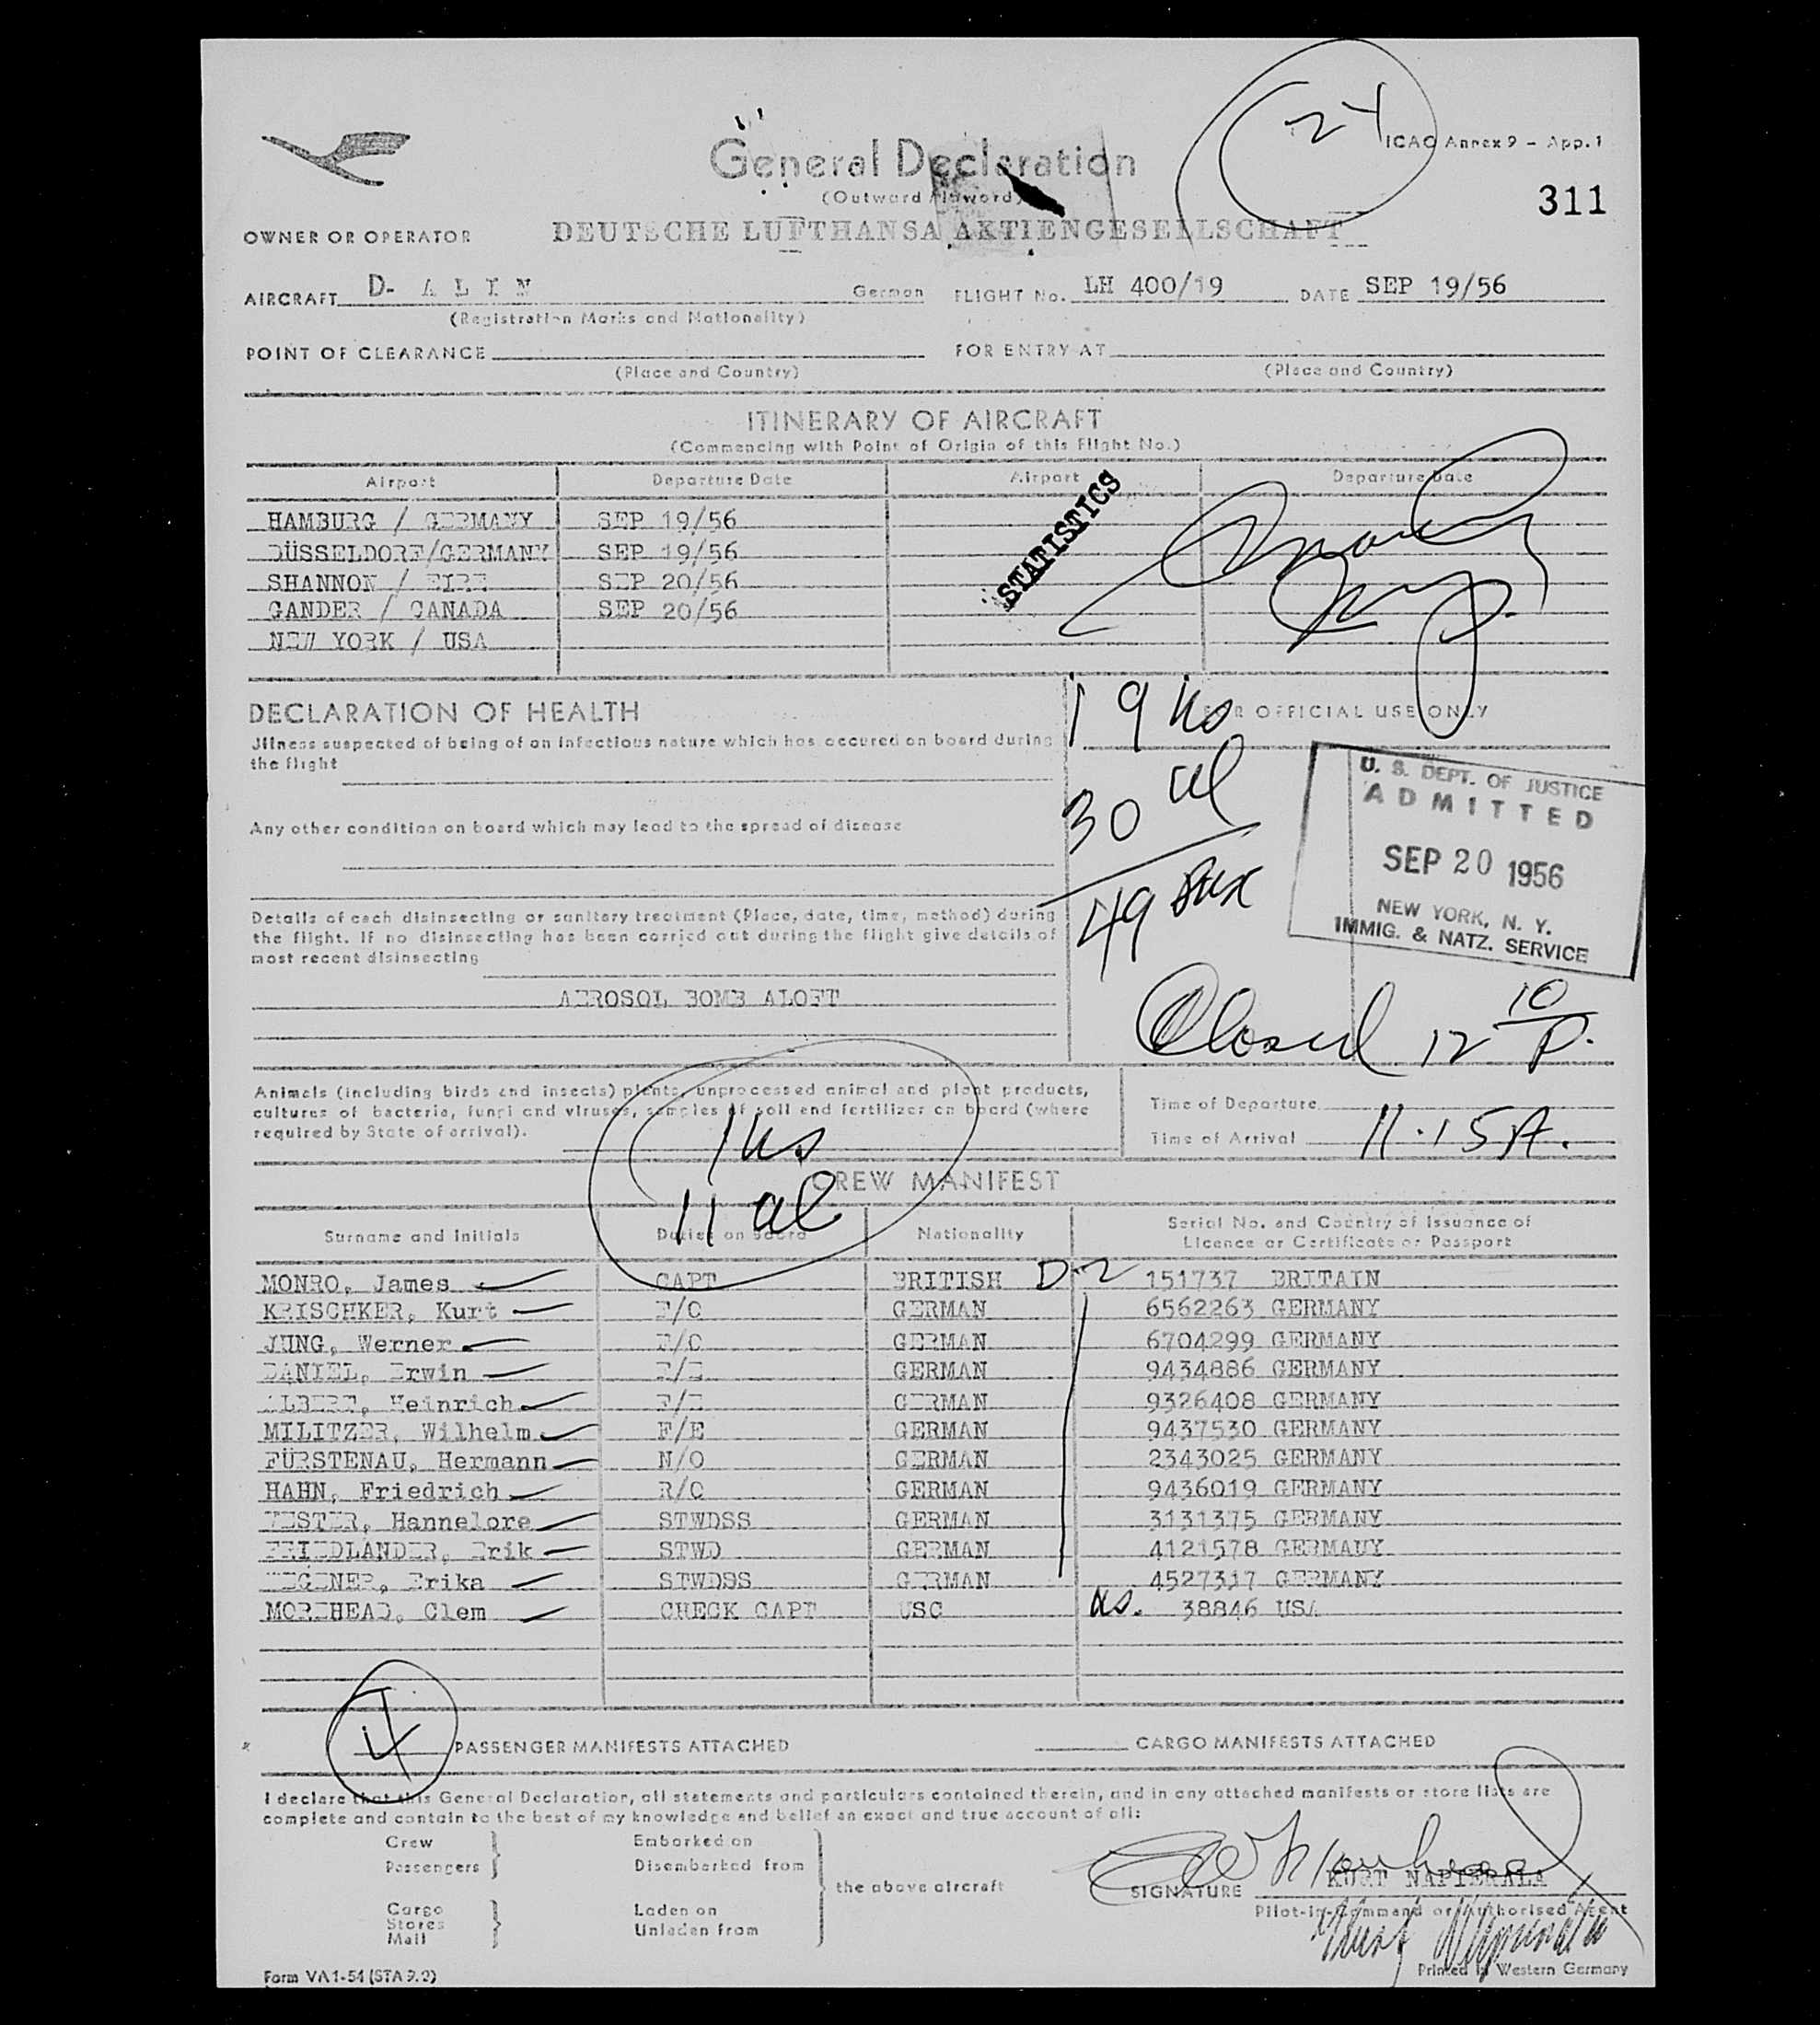 24
ICAO Annex 9 - App. 1
General Declaration
(Outward / Inward)
311
OWNER OR OPERATOR DEUTSCHE LUFTHANSA AKTIENGESELLSCHAFT
AIRCRAFT D- A L I N German FLIGHT No. LH 400/19 DATE SEP 19/56
(Registration Marks and Nationality)
POINT OF CLEARANCE FOR ENTRY AT
(Place and Country) (Place and Country)
ITINERARY OF AIRCRAFT
(Commencing with Point of Origin of this Flight No.)
Airport Departure Date Airport Departure Date
HAMBURG / GERMANY SEP 19/56
DÜSSELDORF/GERMANY SEP 19/56
SHANNON / EIRE SEP 20/56
GANDER / CANADA SEP 20/56
NEW YORK / USA
STATISTICS
DECLARATION OF HEALTH
Jllness suspected of being of an infectious nature which has occured on board during
the flight
Any other condition on board which may lead to the spread of disease
Details of each disinsecting or sanitary treatment (Place, date, time, method) during
the flight. If no disinsecting has been carried out during the flight give details of
most recent disinsecting
AEROSOL BOMB ALOFT
FOR OFFICIAL USE ONLY
19 us
30 al
49 pax
U. S. DEPT. OF JUSTICE
ADMITTED
SEP 20 1956
NEW YORK, N. Y.
IMMIG. & NATZ. SERVICE
Closed 12 10/P.
Animals (including birds and insects) plants, unprocessed animal and plant products,
cultures of bacteria, fungi and viruses, samples of soil and fertilizer on board (where
required by State of arrival).
Time of Departure
Time of Arrival 11.15 A.
1 us
11 al
CREW MANIFEST
Surname and Initials Duties on board Nationality Serial No. and Country of Issuance of
Licence or Certificate or Passport
MONRO, James CAPT BRITISH D-2 151737 BRITAIN
KRISCHKER, Kurt F/O GERMAN 6562263 GERMANY
JUNG, Werner F/O GERMAN 6704299 GERMANY
DANIEL, Erwin F/E GERMAN 9434886 GERMANY
ALBERT, Heinrich F/E GERMAN 9326408 GERMANY
MILITZER, Wilhelm F/E GERMAN 9437530 GERMANY
FÜRSTENAU, Hermann N/O GERMAN 2343025 GERMANY
HAHN, Friedrich R/O GERMAN 9436019 GERMANY
Hannelore STWDSS GERMAN 3131375 GERMANY
FRIEDLANDER, Erik STWD GERMAN 4121578 GERMAUY
WEGENER, Erika STWDSS GERMAN 4527317 GERMANY
MOREHEAD, Clem CHECK CAPT USC us. 38846 USA
4 PASSENGER MANIFESTS ATTACHED CARGO MANIFESTS ATTACHED
I declare that this General Declaration, all statements and particulars contained therein, and in any attached manifests or store lists are
complete and contain to the best of my knowledge and belief an exact and true account of all:
Crew Embarked on
Passengers Disembarked from
the above aircraft
Cargo Laden on
Stores
Mail Unladen from
SIGNATURE KURT NAPIERALA
Pilot-in-Command or Authorised Agent
Form VA 1-54 (STA 9.2)
Printed in Western Germany